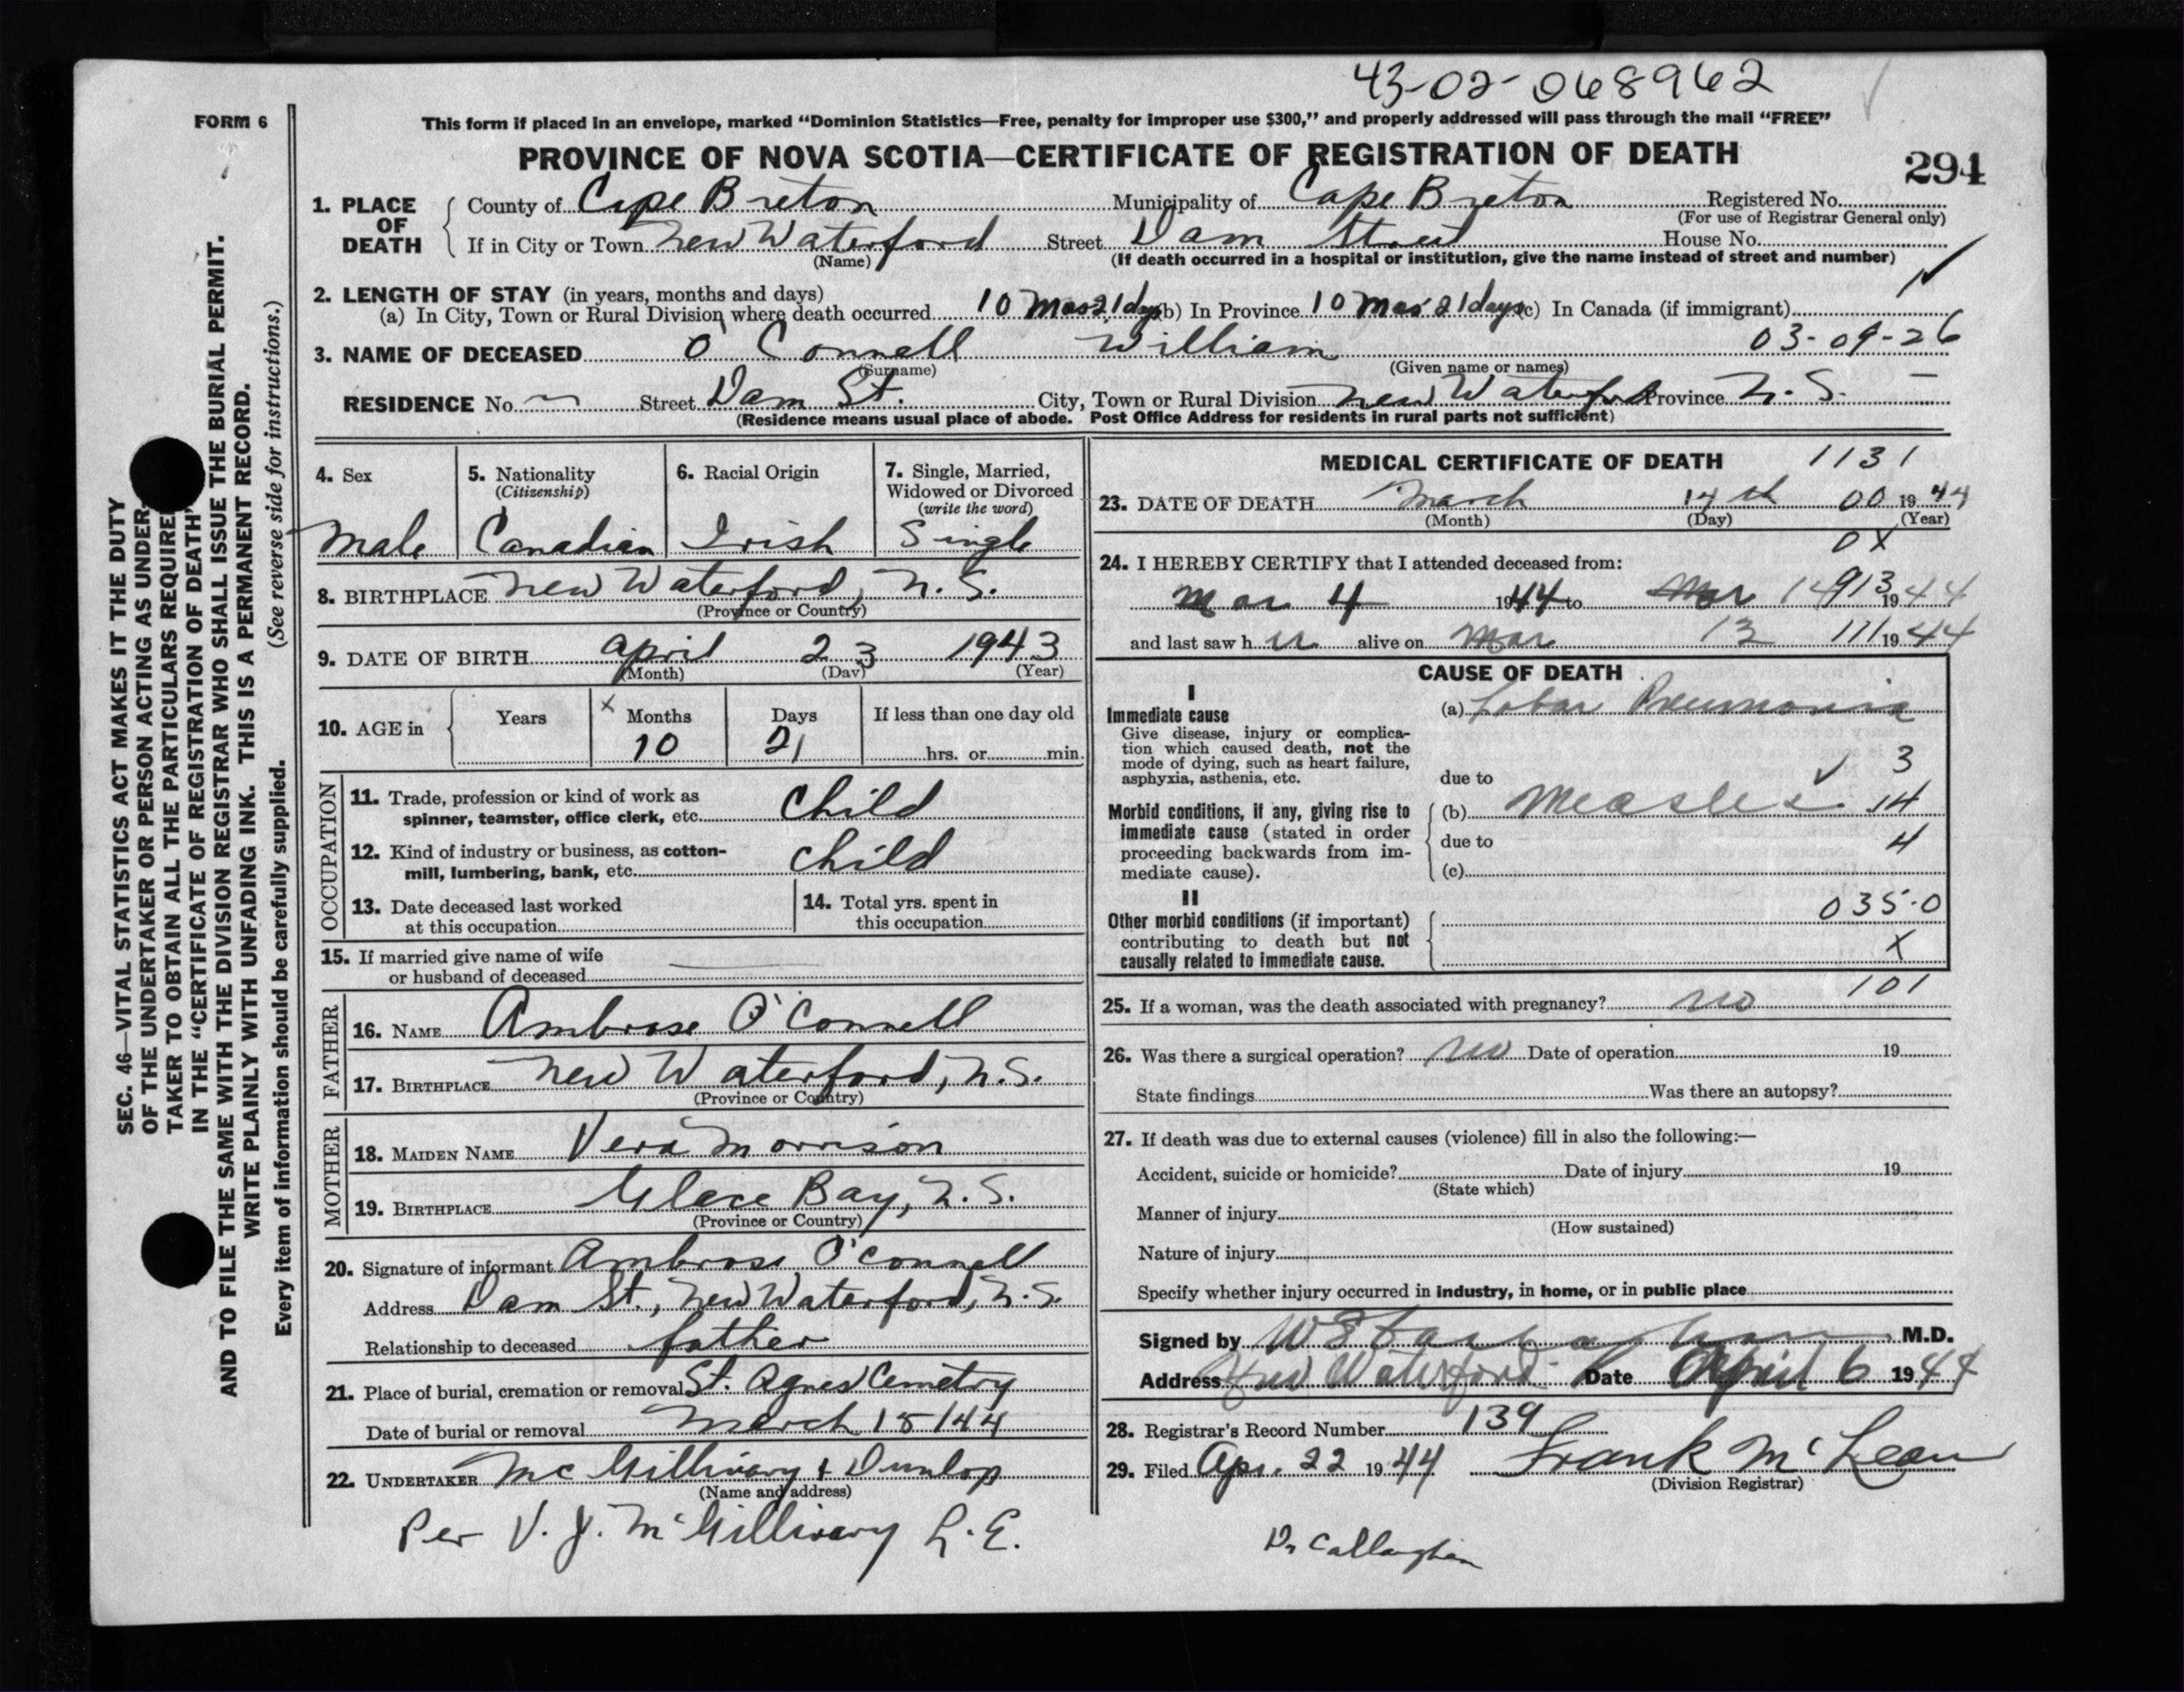 43-02-068962
FORM 6
This form if placed in an envelope, marked “Dominion Statistics—Free, penalty for improper use $300,” and properly addressed will pass through the mail “FREE”
PROVINCE OF NOVA SCOTIA—CERTIFICATE OF REGISTRATION OF DEATH
294
1. PLACE OF DEATH { County of Cape Breton Municipality of Cape Breton Registered No.
(For use of Registrar General only)
If in City or Town New Waterford Street Dam Street House No.
(Name) (If death occurred in a hospital or institution, give the name instead of street and number)
2. LENGTH OF STAY (in years, months and days)
(a) In City, Town or Rural Division where death occurred 10 Mos 21 days (b) In Province 10 Mos 21 days (c) In Canada (if immigrant)
3. NAME OF DECEASED O Connell William 03-09-26
(Surname) (Given name or names)
RESIDENCE No. — Street Dam St. City, Town or Rural Division New Waterford Province N. S. —
(Residence means usual place of abode. Post Office Address for residents in rural parts not sufficient)
4. Sex Male
5. Nationality (Citizenship) Canadian
6. Racial Origin Irish
7. Single, Married, Widowed or Divorced (write the word) Single
8. BIRTHPLACE New Waterford, N. S.
(Province or Country)
9. DATE OF BIRTH April 23 1943
(Month) (Day) (Year)
10. AGE in { Years x Months Days If less than one day old
10 21 hrs. or min.
OCCUPATION
11. Trade, profession or kind of work as
spinner, teamster, office clerk, etc. Child
12. Kind of industry or business, as cotton-
mill, lumbering, bank, etc. Child
13. Date deceased last worked
at this occupation
14. Total yrs. spent in
this occupation
15. If married give name of wife
or husband of deceased
FATHER
16. NAME Ambrose O'Connell
17. BIRTHPLACE New Waterford, N.S.
(Province or Country)
MOTHER
18. MAIDEN NAME Vera Morrison
19. BIRTHPLACE Glace Bay, N.S.
(Province or Country)
20. Signature of informant Ambrose O'Connell
Address Dam St., New Waterford, N.S.
Relationship to deceased father
21. Place of burial, cremation or removal St. Agnes Cemetry
Date of burial or removal March 15/44
22. UNDERTAKER McGillivary & Dunlop
(Name and address)
Per V. J. McGillivary L.E.
MEDICAL CERTIFICATE OF DEATH 1131
23. DATE OF DEATH March 14th 00 1944
(Month) (Day) (Year)
0X
24. I HEREBY CERTIFY that I attended deceased from:
Mar 4 1944 to Mar 14 913 1944
and last saw h alive on Mar 13 111 1944
CAUSE OF DEATH
I
Immediate cause
Give disease, injury or complica-
tion which caused death, not the
mode of dying, such as heart failure,
asphyxia, asthenia, etc.
(a) Lobar Pneumonia
due to 3
Morbid conditions, if any, giving rise to
immediate cause (stated in order
proceeding backwards from im-
mediate cause).
(b) Measles 14
due to 4
(c)
II
Other morbid conditions (if important)
contributing to death but not
causally related to immediate cause.
035-0
X
101
25. If a woman, was the death associated with pregnancy? no
26. Was there a surgical operation? no Date of operation 19
State findings Was there an autopsy?
27. If death was due to external causes (violence) fill in also the following:—
Accident, suicide or homicide? Date of injury 19
(State which)
Manner of injury
(How sustained)
Nature of injury
Specify whether injury occurred in industry, in home, or in public place
Signed by M.D.
Address New Waterford Date April 6 1944
28. Registrar's Record Number 139
29. Filed Apr. 22 1944 Frank McLean
(Division Registrar)
Dr Callaghan
SEC. 46—VITAL STATISTICS ACT MAKES IT THE DUTY
OF THE UNDERTAKER OR PERSON ACTING AS UNDER-
TAKER TO OBTAIN ALL THE PARTICULARS REQUIRED
IN THE “CERTIFICATE OF REGISTRATION OF DEATH”
AND TO FILE THE SAME WITH THE DIVISION REGISTRAR WHO SHALL ISSUE THE BURIAL PERMIT.
WRITE PLAINLY WITH UNFADING INK. THIS IS A PERMANENT RECORD.
Every item of information should be carefully supplied. (See reverse side for instructions.)